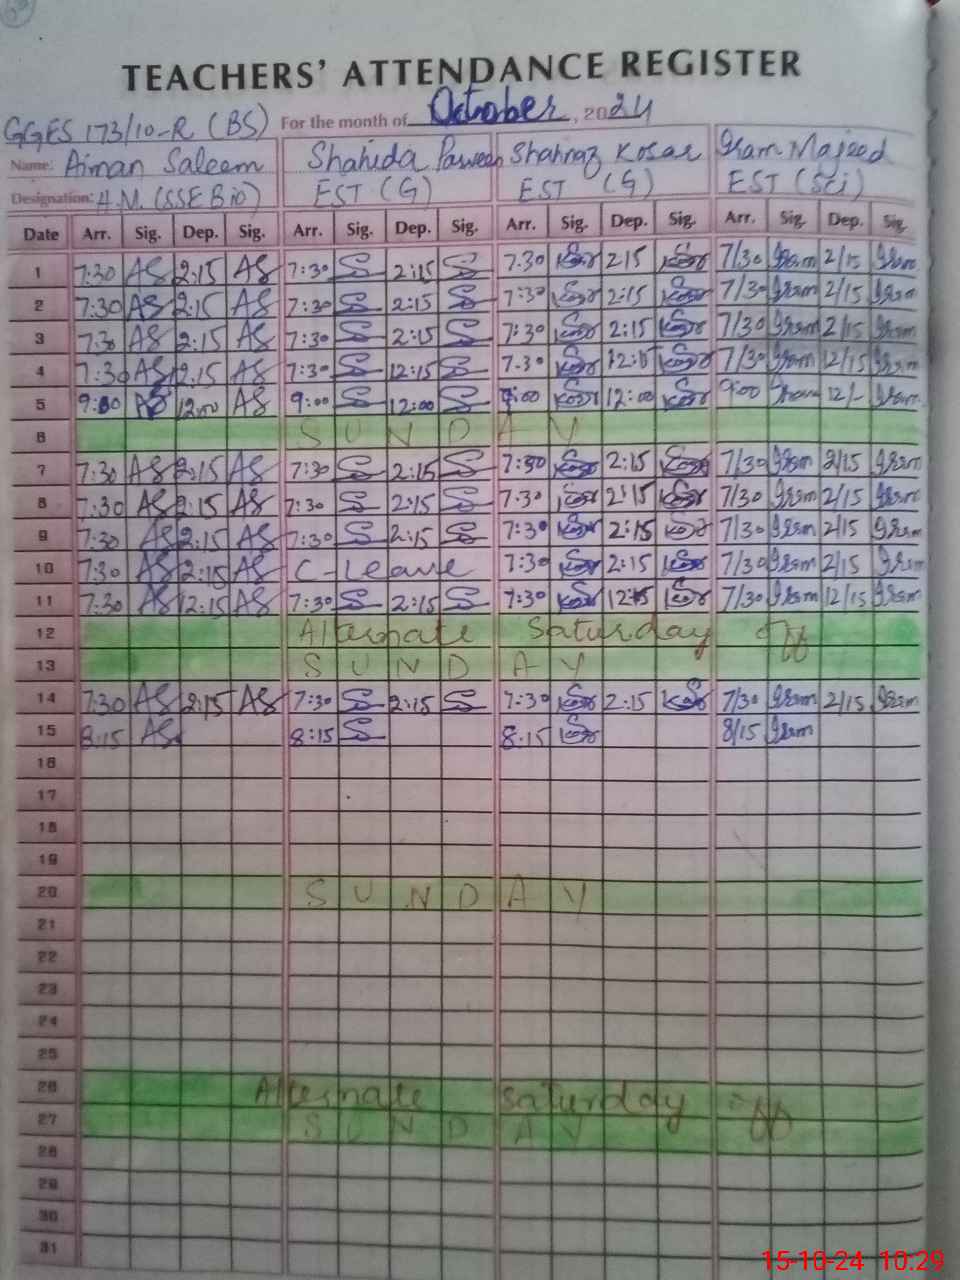 TEACHERS' ATTENDANCE REGISTER
GGES 173/10-R (BS) For the month of October, 2024
Name: Aiman Saleem Shahida Parveen Shahnaz Kosar Iram Majeed
Designation: H.M. (SSE Bio) EST (G) EST (G) EST (Sci)
Date Arr. Sig. Dep. Sig. Arr. Sig. Dep. Sig. Arr. Sig. Dep. Sig. Arr. Sig. Dep. Sig.
1 7:30 AS 2:15 AS 7:30 S 2:15 S 7:30 Kosar 2:15 Kosar 7/30 Iram 2/15 Iram
2 7:30 AS 2:15 AS 7:30 S 2:15 S 7:30 Kosar 2:15 Kosar 7/30 Iram 2/15 Iram
3 7:30 AS 2:15 AS 7:30 S 2:15 S 7:30 Kosar 2:15 Kosar 7/30 Iram 2/15 Iram
4 7:30 AS 12:15 AS 7:30 S 12:15 S 7:30 Kosar 12:15 Kosar 7/30 Iram 12/15 Iram
5 9:00 AS 12:00 AS 9:00 S 12:00 S 9:00 Kosar 12:00 Kosar 9:00 Iram 12/- Iram
6 SUNDAY
7 7:30 AS 2:15 AS 7:30 S 2:15 S 7:30 Kosar 2:15 Kosar 7/30 Iram 2/15 Iram
8 7:30 AS 2:15 AS 7:30 S 2:15 S 7:30 Kosar 2:15 Kosar 7/30 Iram 2/15 Iram
9 7:30 AS 2:15 AS 7:30 S 2:15 S 7:30 Kosar 2:15 Kosar 7/30 Iram 2/15 Iram
10 7:30 AS 2:15 AS C-Leave 7:30 Kosar 2:15 Kosar 7/30 Iram 2/15 Iram
11 7:30 AS 12:15 AS 7:30 S 2:15 S 7:30 Kosar 12:15 Kosar 7/30 Iram 12/15 Iram
12 Alternate Saturday off
13 SUNDAY
14 7:30 AS 2:15 AS 7:30 S 2:15 S 7:30 Kosar 2:15 Kosar 7/30 Iram 2/15 Iram
15 8:15 AS 8:15 S 8:15 Kosar 8/15 Iram
16
17
18
19
20 SUNDAY
21
22
23
24
25
26 Alternate Saturday off
27 SUNDAY
28
29
30
31
15-10-24 10:29